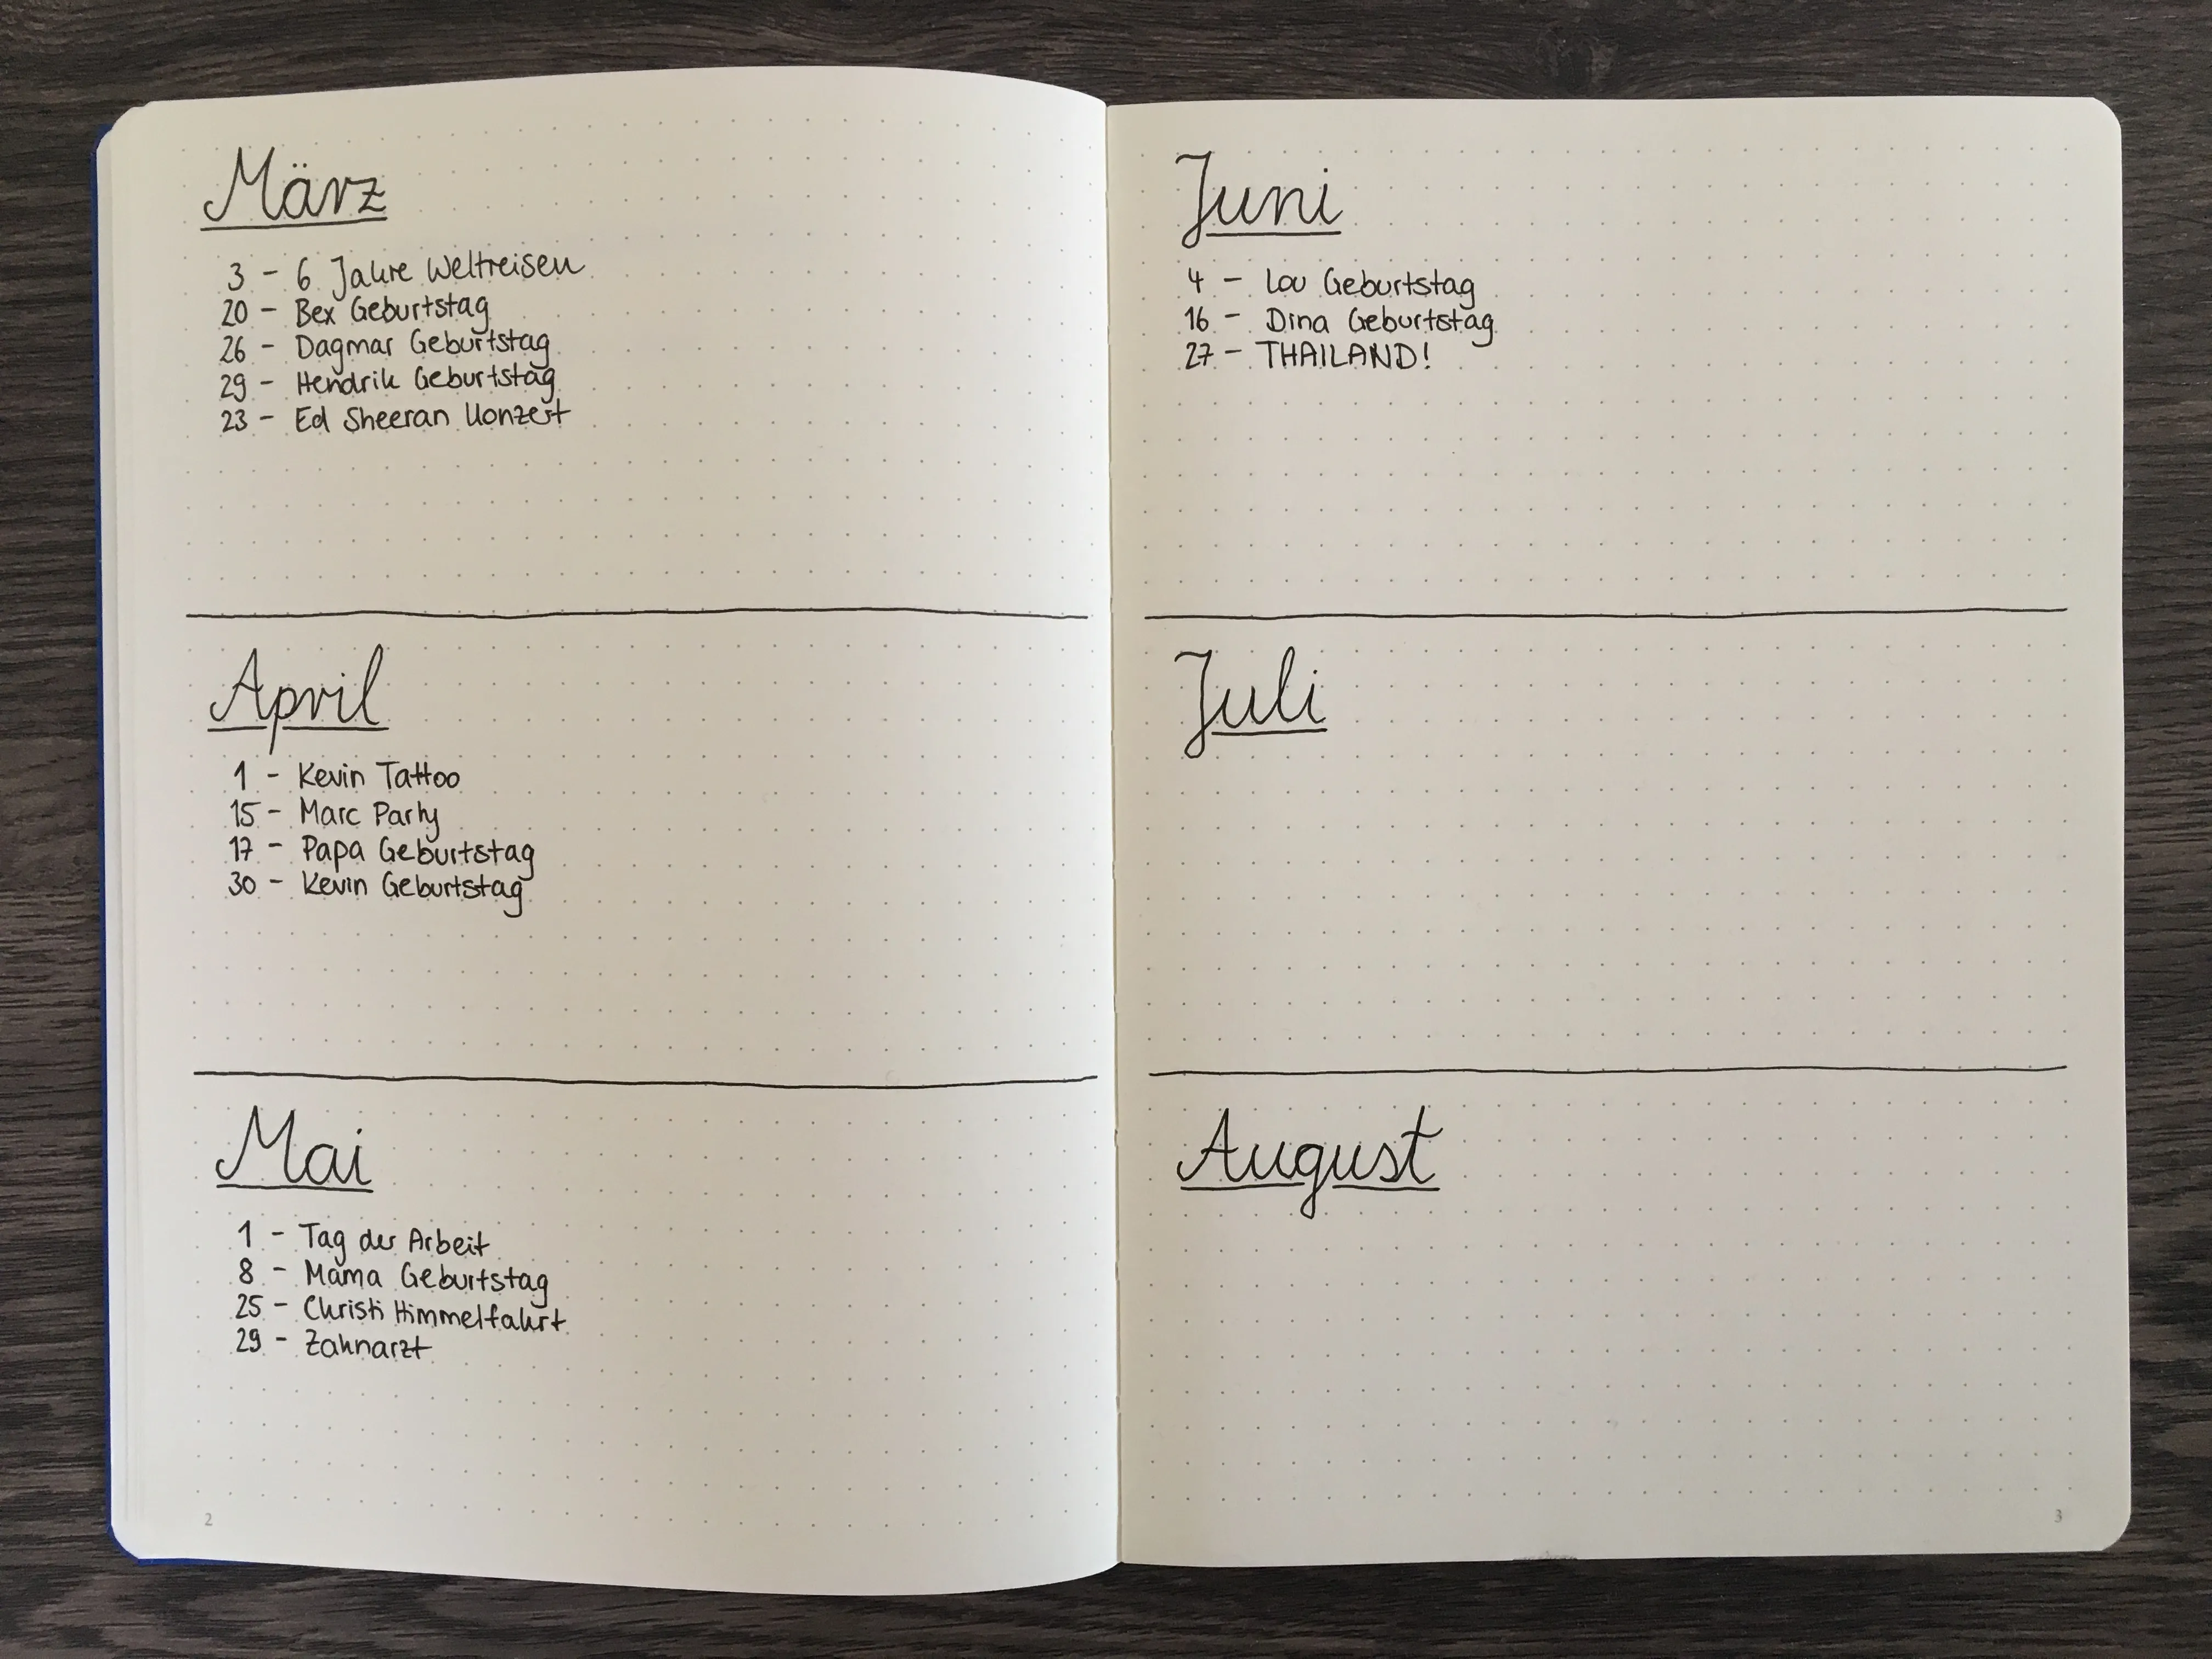 März
3 - 6 Jahre Weltreisen
20 - Bex Geburtstag
26 - Dagmar Geburtstag
29 - Hendrik Geburtstag
23 - Ed Sheeran Konzert
April
1 - Kevin Tattoo
15 - Marc Party
17 - Papa Geburtstag
30 - Kevin Geburtstag
Mai
1 - Tag der Arbeit
8 - Mama Geburtstag
25 - Christi Himmelfahrt
29 - Zahnarzt
2
Juni
4 - Lou Geburtstag
16 - Dina Geburtstag
27 - THAILAND!
Juli
August
3